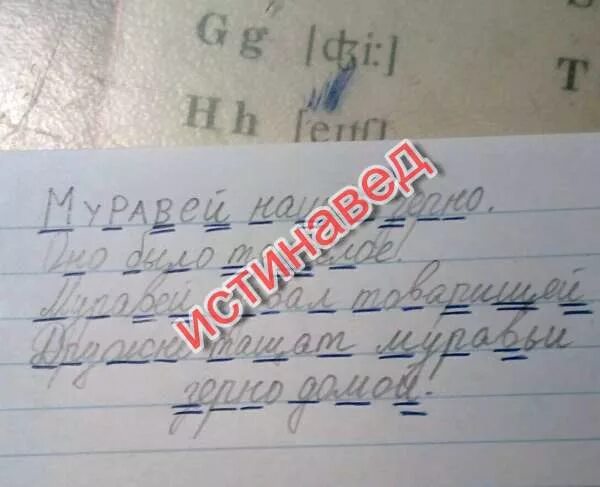 G g [ʤi:]
H h [eɪʧ]
T
Муравей зерно.
Оно было
Муравей товарищей
Дружно тащат муравьи
зерно домой.
ИСТИНАВЕД